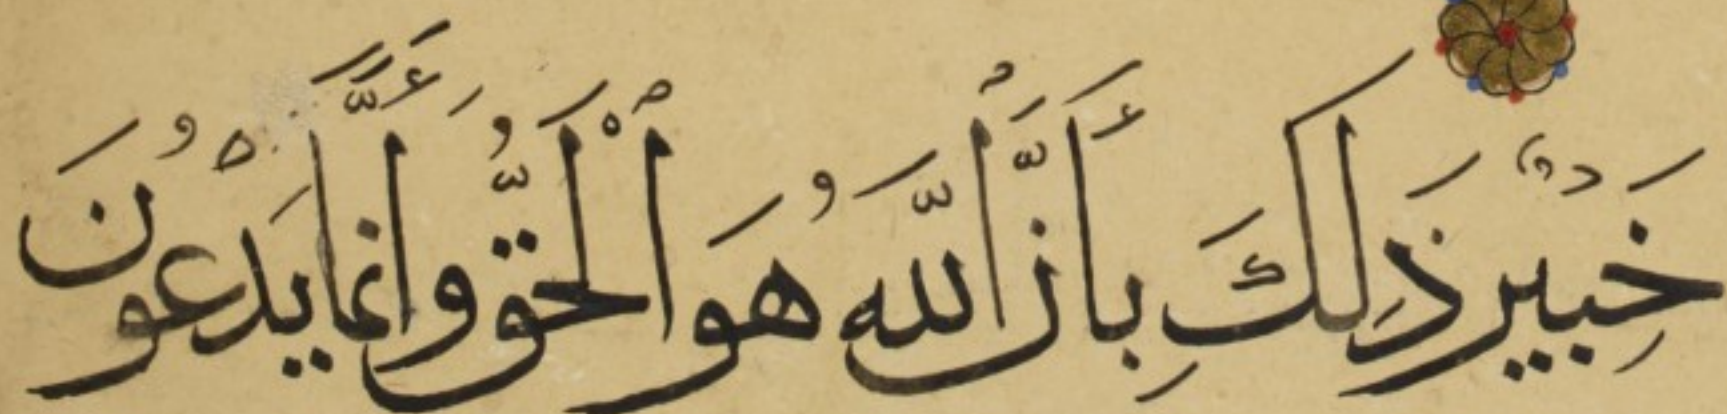 خَبِيرٌ ذَلِكَ بِأَنَّ ٱللَّهَ هُوَ ٱلْحَقُّ وَأَنَّمَا يَدْعُونَ